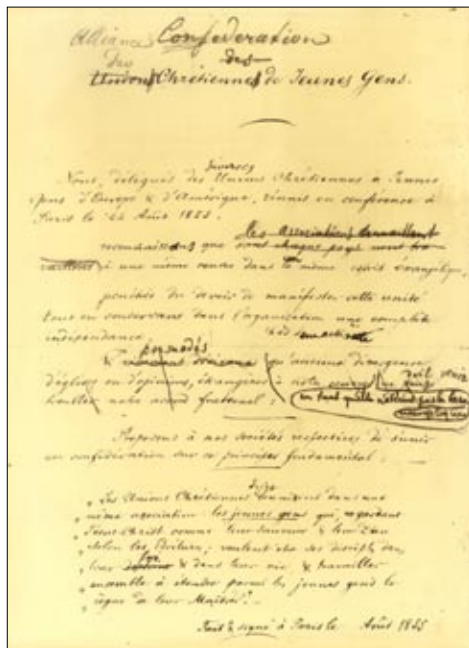 Alliance Confederation
des
Unions Chrétiennes de Jeunes Gens.
diverses
Nous, délégués des Unions Chrétiennes de Jeunes
Gens d'Europe & d'Amérique, réunis en conférence à
Paris le Août 1855.
les associations travaillent
que dans chaque pays
à une même dans le même esprit évangélique,
pénétrés du devoir de manifester cette unité
tout en conservant dans l'organisation une complète
indépendance
persuadés
qu'aucune divergence
d'églises ou d'opinions, étrangères à notre
troubler notre accord fraternel :
Proposons à nos sociétés respectives de s'unir
en confédération sur ce principe fondamental :
„ Les Unions Chrétiennes dans une
„ même association les jeunes gens qui, regardant
„ Jésus-Christ comme leur Sauveur & leur Dieu
„ selon les Ecritures, veulent être ses disciples dans
„ leur foi & dans leur vie & travailler
„ ensemble à étendre parmi les jeunes gens le
„ règne de leur Maître."
Fait & signé à Paris le Août 1855